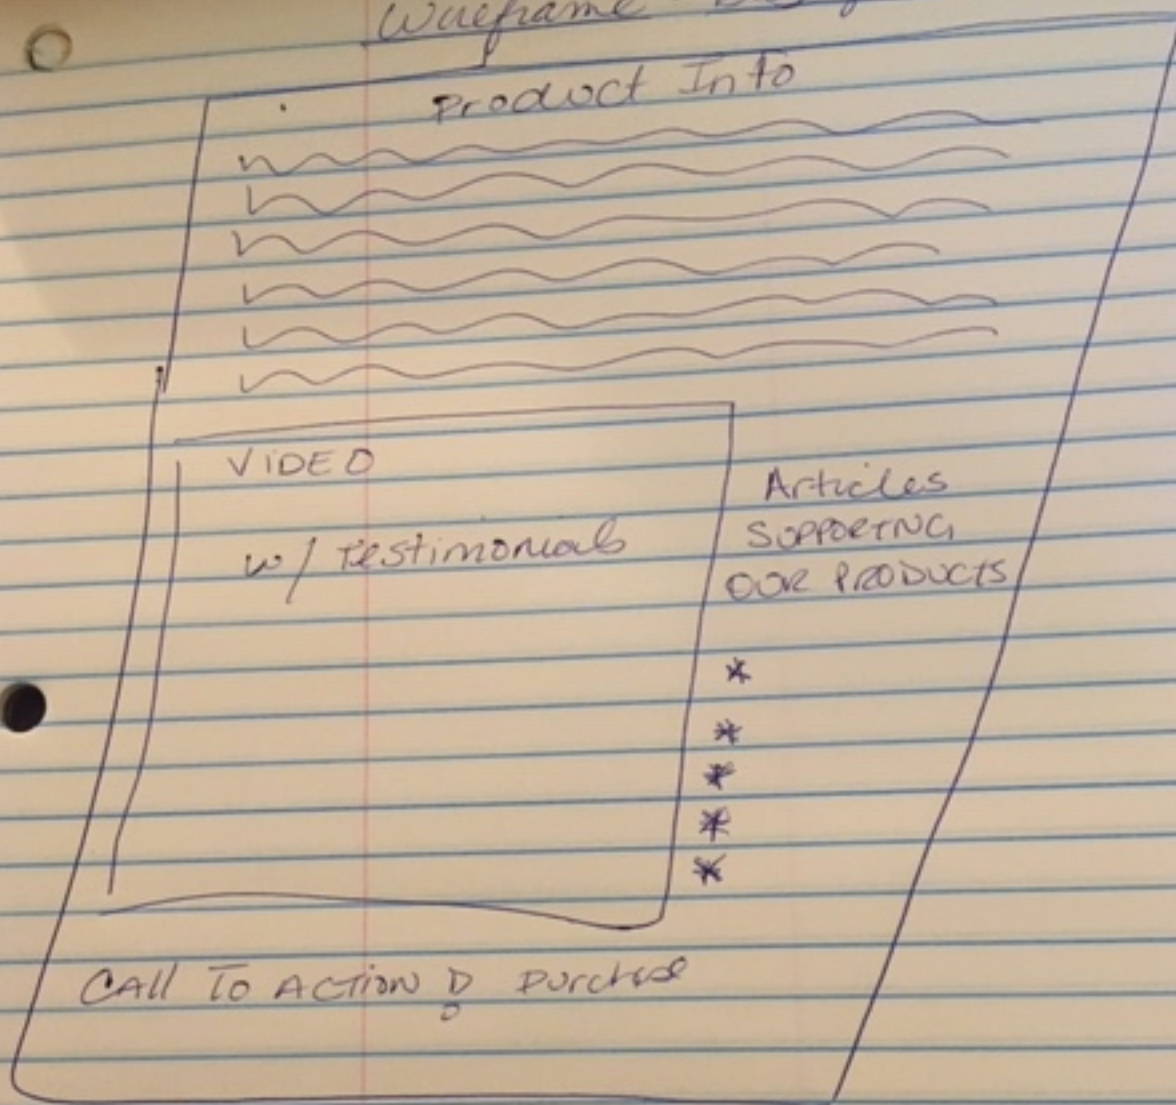 Wireframe
Product Info
VIDEO
w/ testimonials
Articles
SUPPORTING
OUR PRODUCTS
*
*
*
*
*
CALL TO ACTION Purchase